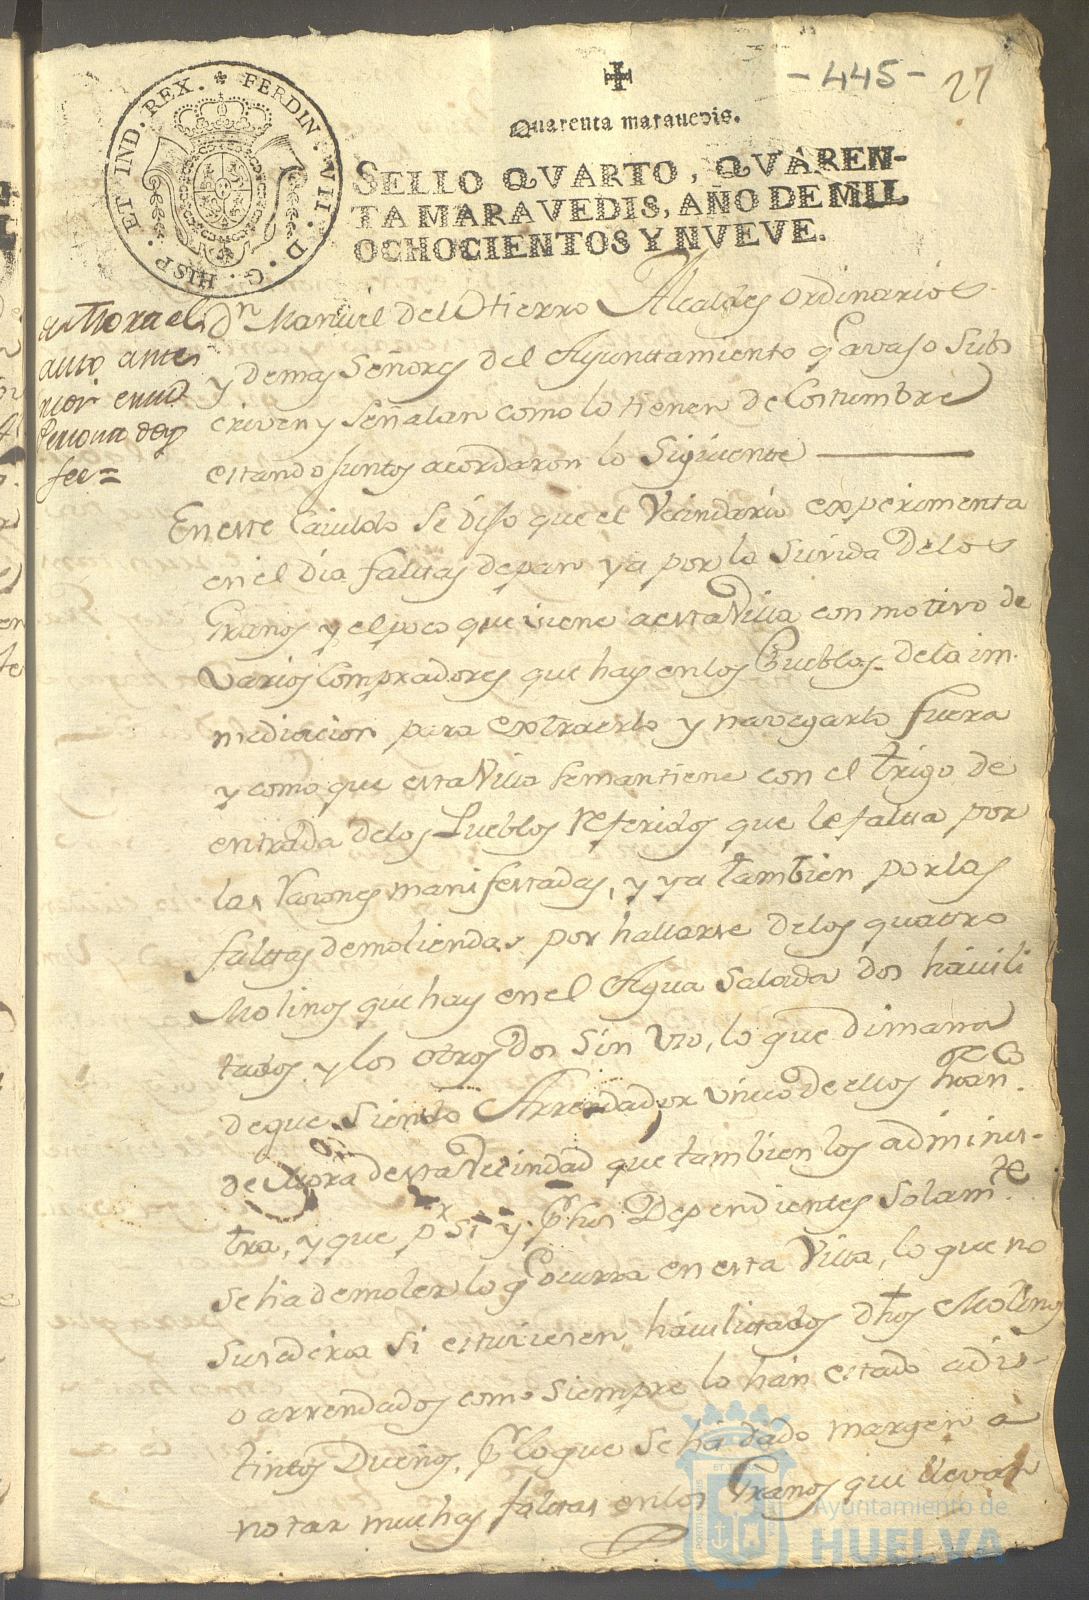 - 445 - 27
Quarenta maravedis.
SELLO QVARTO, QVAREN-
TA MARAVEDIS, AÑO DE MIL
OCHOCIENTOS Y NVEVE.
FERDIN. VII. D. G. HISP. ET IND. REX.
a Mora el
auto ante
rior en su
Persona doy
fee =
Dn Manuel del Otierro Alcaldes ordinarios
y demas Señores del Ayuntamiento q avajo subs
criven y Señalan como lo tienen de Costumbre
estando Juntos acordaron lo Siguiente
En este Cavildo Se dijo que el Vecindario experimenta
en el Dia faltas de pan ya por la Suvida de los
Granos y el poco que viene a esta Villa con motivo de
Varios Compradores que hay en los Pueblos de la in-
mediacion para extraerlo y navegarlo fuera
y como que esta Villa se mantiene con el trigo de
entrada de los Pueblos referidos que le falta por
las razones manifestadas, y ya tambien por las
faltas de moliendas por hallarse de los quatro
Molinos que hay en el Agua Salada dos havili
tados y los otros dos sin uso, lo que dimana
de que siendo Arrendador unico de ellos
de Mora de esta Vecindad que tambien los adminis-
tra, y que pr si y sus Dependientes Solamte
se ha de moler lo q ocurra en esta Villa, lo que no
sucederia si estuviesen havilitados dhos Molinos
o arrendados como siempre lo han estado a dis-
tintos Dueños, pr lo que se ha dado margen a
notar muchas faltas en los Granos que llevan
Ayuntamiento de
HUELVA